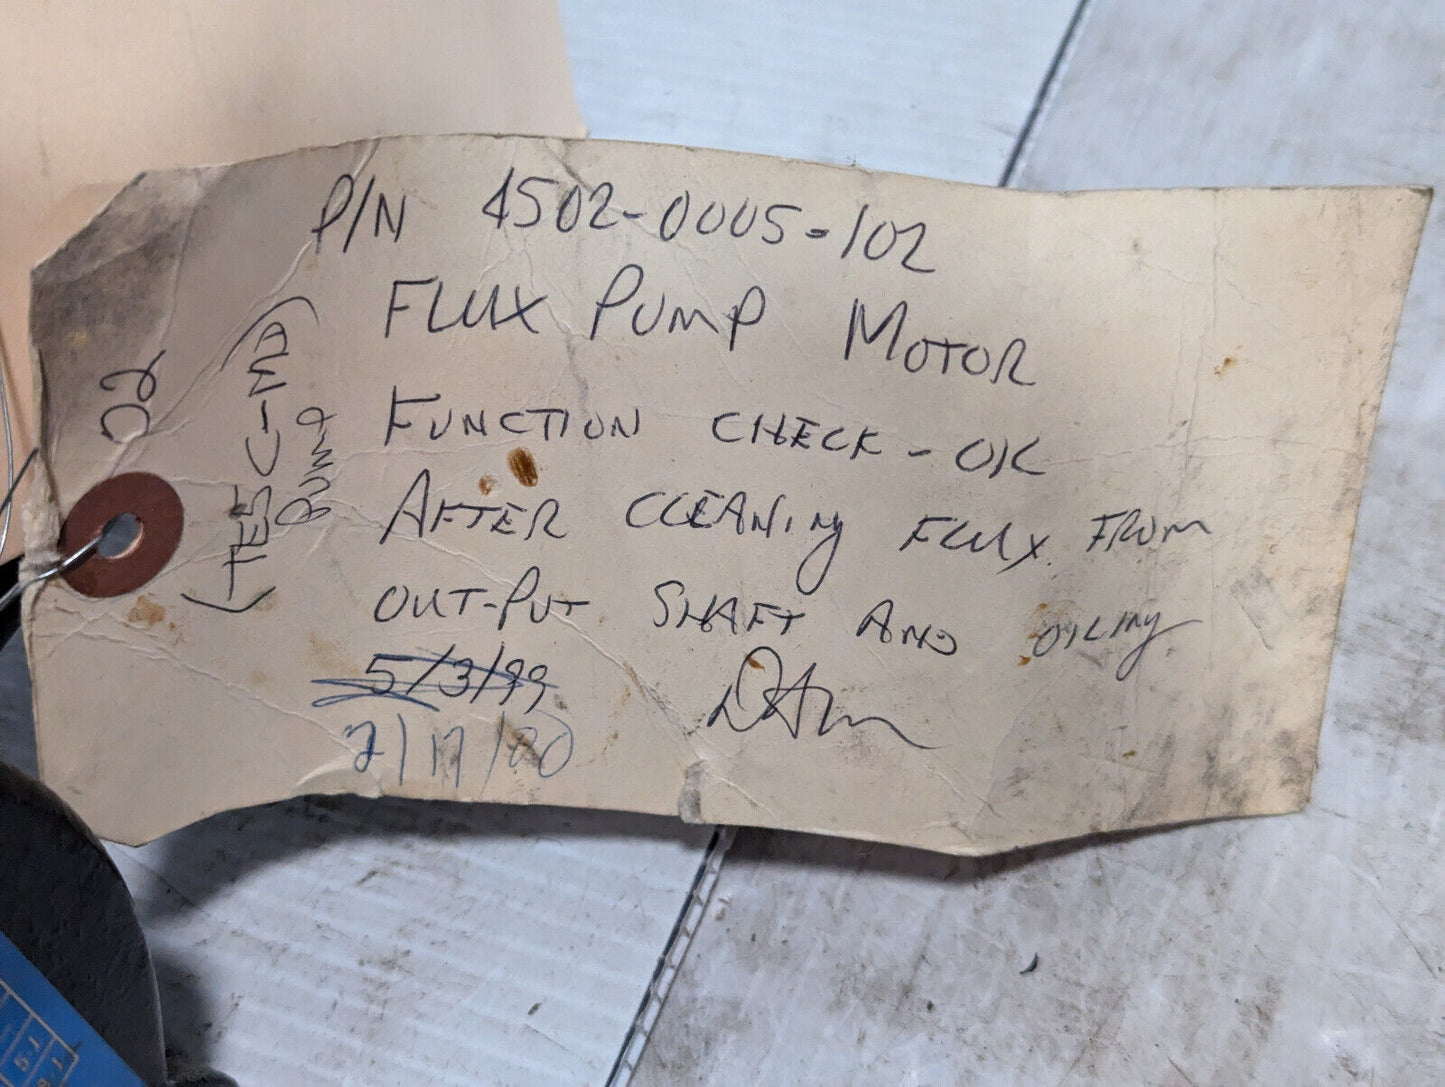 P/N 4502-0005-102
FLUX PUMP MOTOR
FUNCTION CHECK - OK
AFTER CLEANING FLUX FROM
OUT-PUT SHAFT AND OILING
5/3/99
2/17/00
02
(TESC-MD)
PUMP
5.1